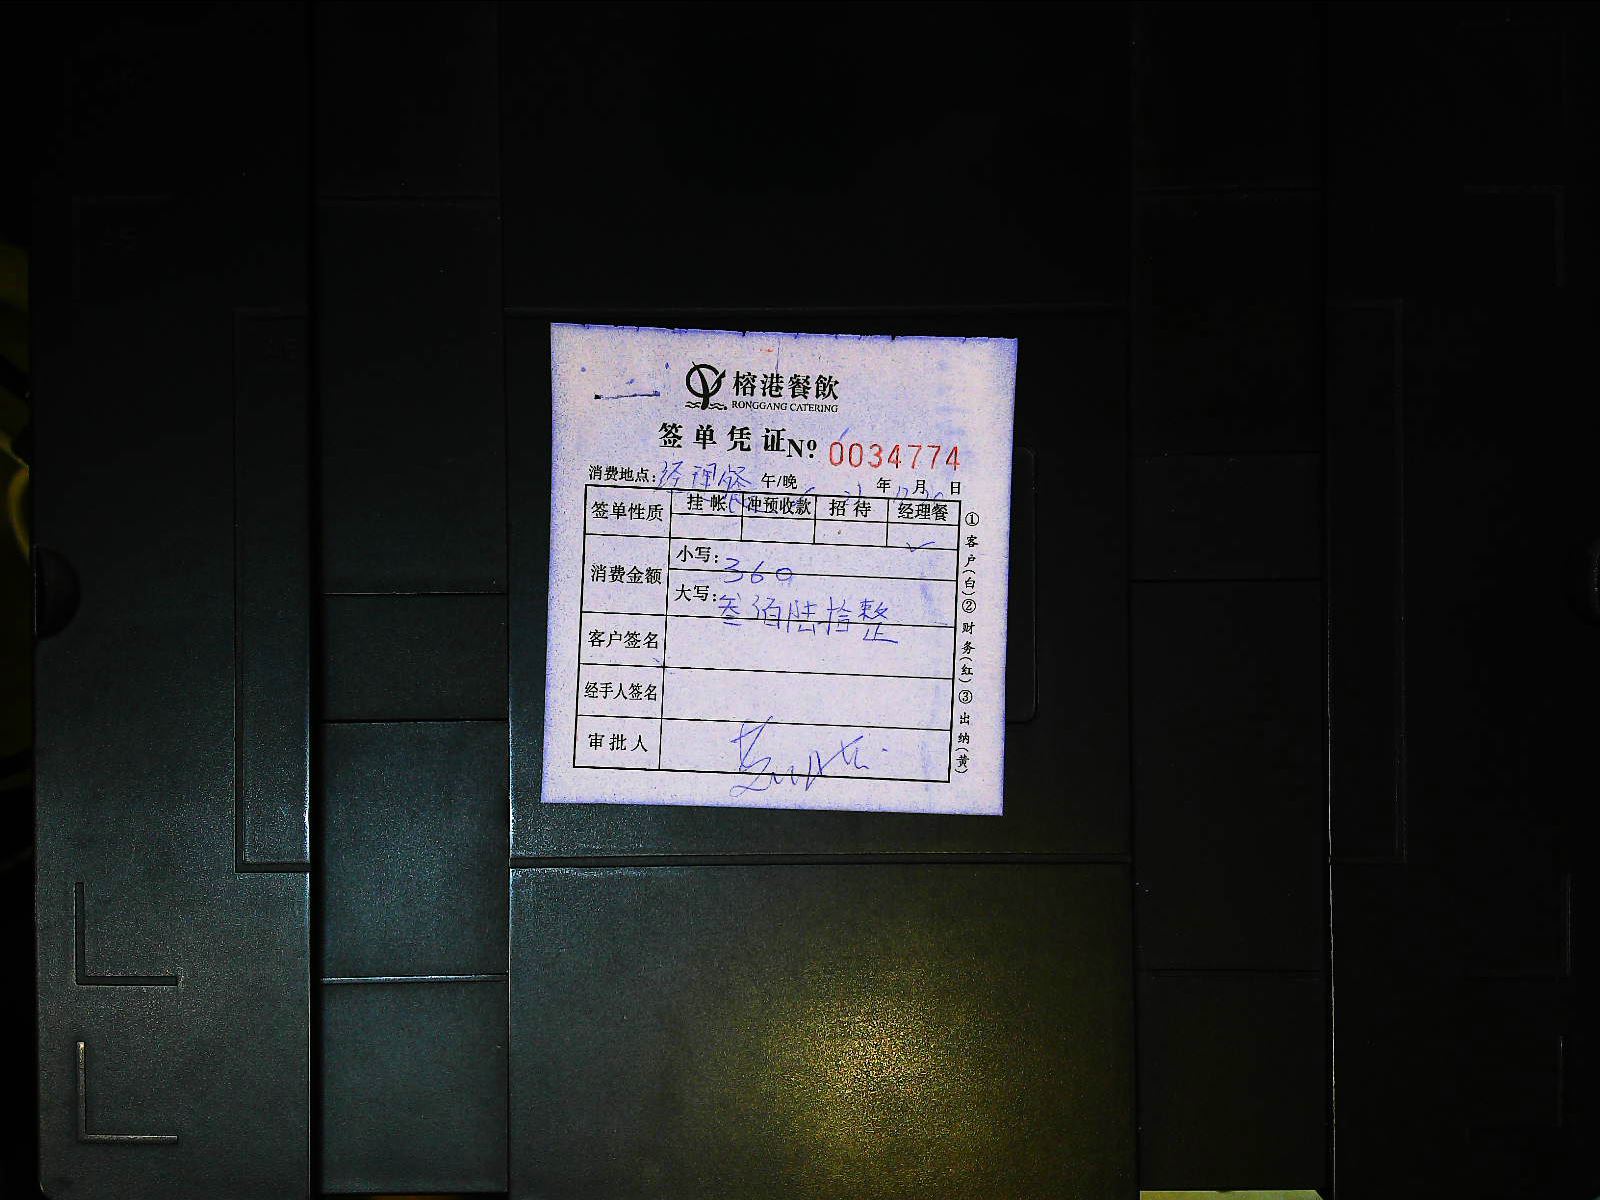 榕港餐飲
RONGGANG CATERING
签单凭证 Nº 0034774
消费地点:经理餐 午/晚 年 月 日
签单性质 挂帐 冲预收款 招待 经理餐
✓
消费金额 小写:360
大写:叁佰陆拾整
客户签名
经手人签名
审批人
①客户(白)②财务(红)③出纳(黄)